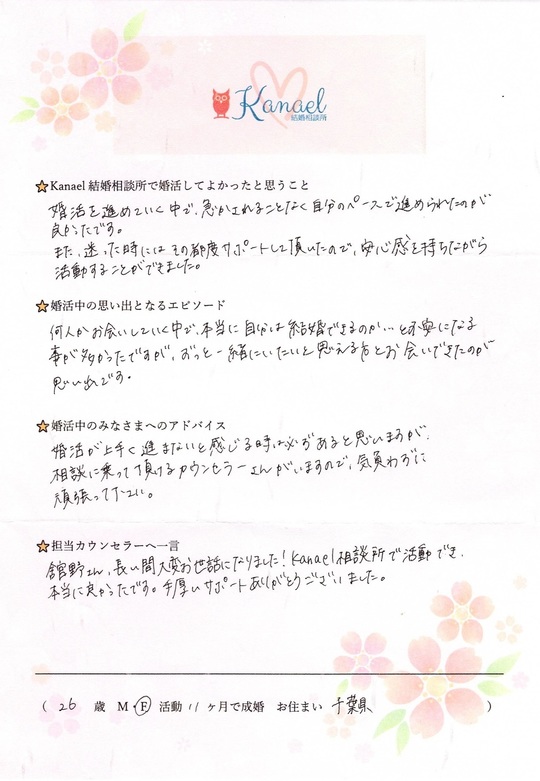 Kanael
結婚相談所
☆Kanael 結婚相談所で婚活してよかったと思うこと
婚活を進めていく中で、急かされることなく自分のペースで進められたのが
良かったです。
また、迷った時にはその都度サポートして頂いたので、安心感を持ちながら
活動することができました。
☆婚活中の思い出となるエピソード
何人かお会いしていく中で、本当に自分は結婚できるのか…と不安になる
事が多かったですが、ずっと一緒にいたいと思える方とお会いできたのが
思い出です。
☆婚活中のみなさまへのアドバイス
婚活が上手く進まないと感じる時は必ずあると思いますが、
相談に乗って頂けるカウンセラーさんがいますので、気負わずに
頑張って下さい。
☆担当カウンセラーへ一言
舘野さん、長い間大変お世話になりました！Kanael相談所で活動でき、
本当に良かったです。手厚いサポートありがとうございました。
( 26 歳 M・F 活動 11 ヶ月で成婚 お住まい 千葉県 )